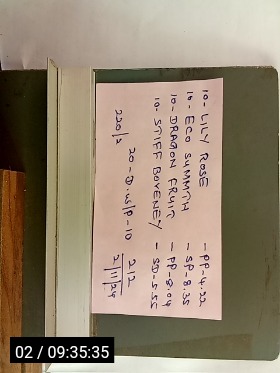 10- LILY ROSE - PP-4.22
10- ECO SUMMTH - SP-8.35
10- DRAGON FRUIT - PP-8.04
10- STIFF BOVENEY - SD-5.55
20-D.W/P-10
220/2
2/2
2/11/24
02 / 09:35:35